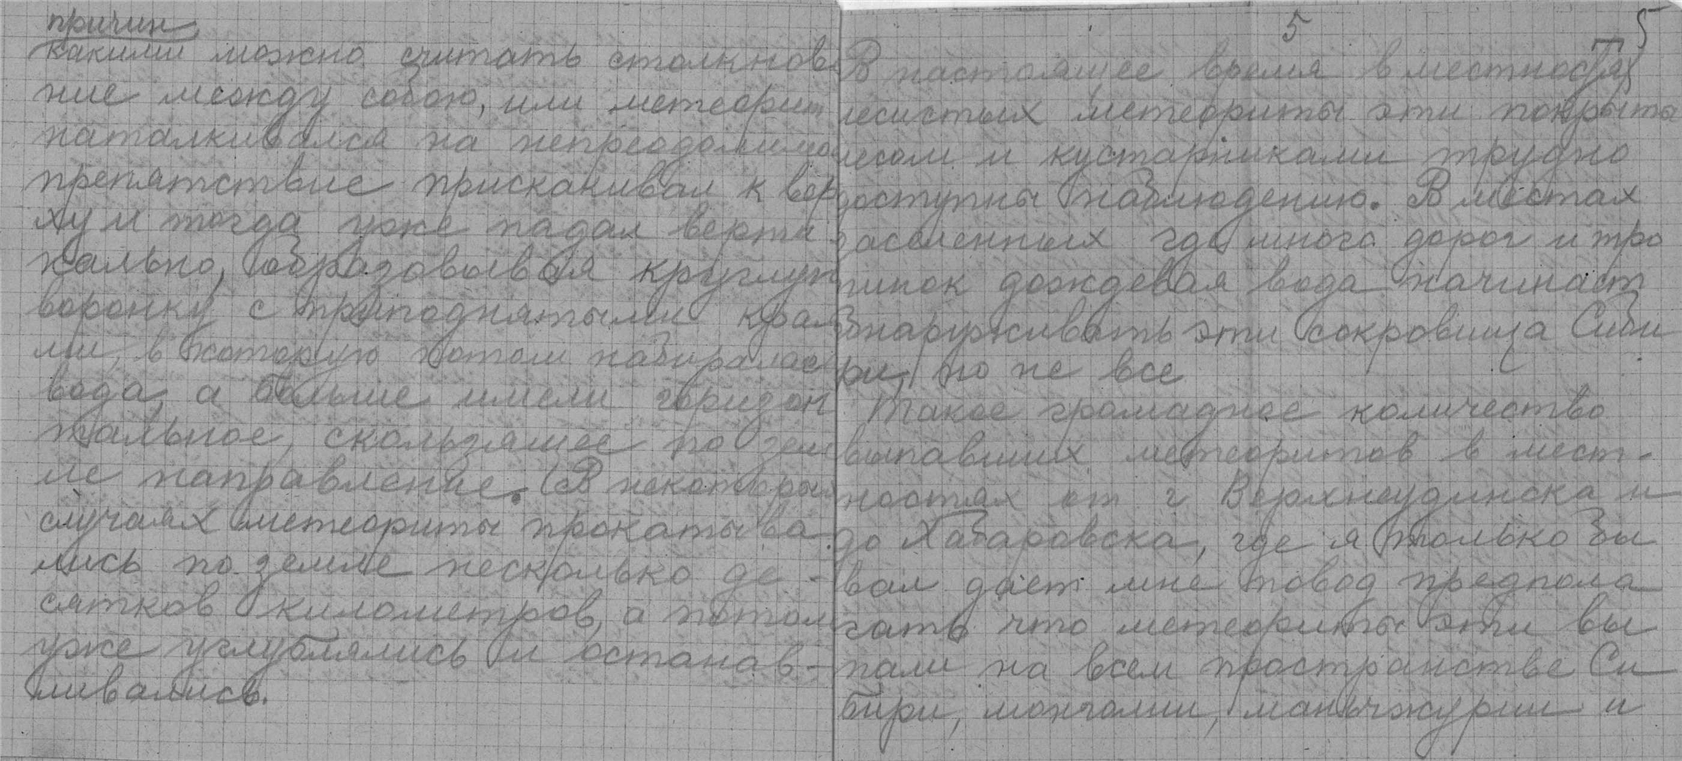 причин
какими можно считать столкнов
ние между собою, или метеорит
наталкивался на непреодолимо
препятствие прискакивал к вер
ху и тогда уже падал верти
кально, образовывая круглую
воронку с приподнятыми края
ми, в которую потом набиралась
вода, а больше имели горизон
тальное, скользящее по зем
ле направление. (В некоторы
случаях метеориты прокатыва
лись по земле несколько де-
сятков километров, а потом
уже углублялись и останав-
ливались.
5 5
В настоящее время в местностях
лесистых метеориты эти покрыты
лесом и кустарниками трудно
доступны наблюдению. В местах
заселенных где много дорог и тро
пинок дождевая вода начинает
обнаруживать эти сокровища Сиби
ри, но не все
Такое громадное количество
выпавших метеоритов в мест-
ностях от г Верхнеудинска и
до Хабаровска, где я только бы
вал дает мне повод предпола
гать что метеориты эти вы
пали на всем пространстве Си
бири, монголии, маньчжурии и